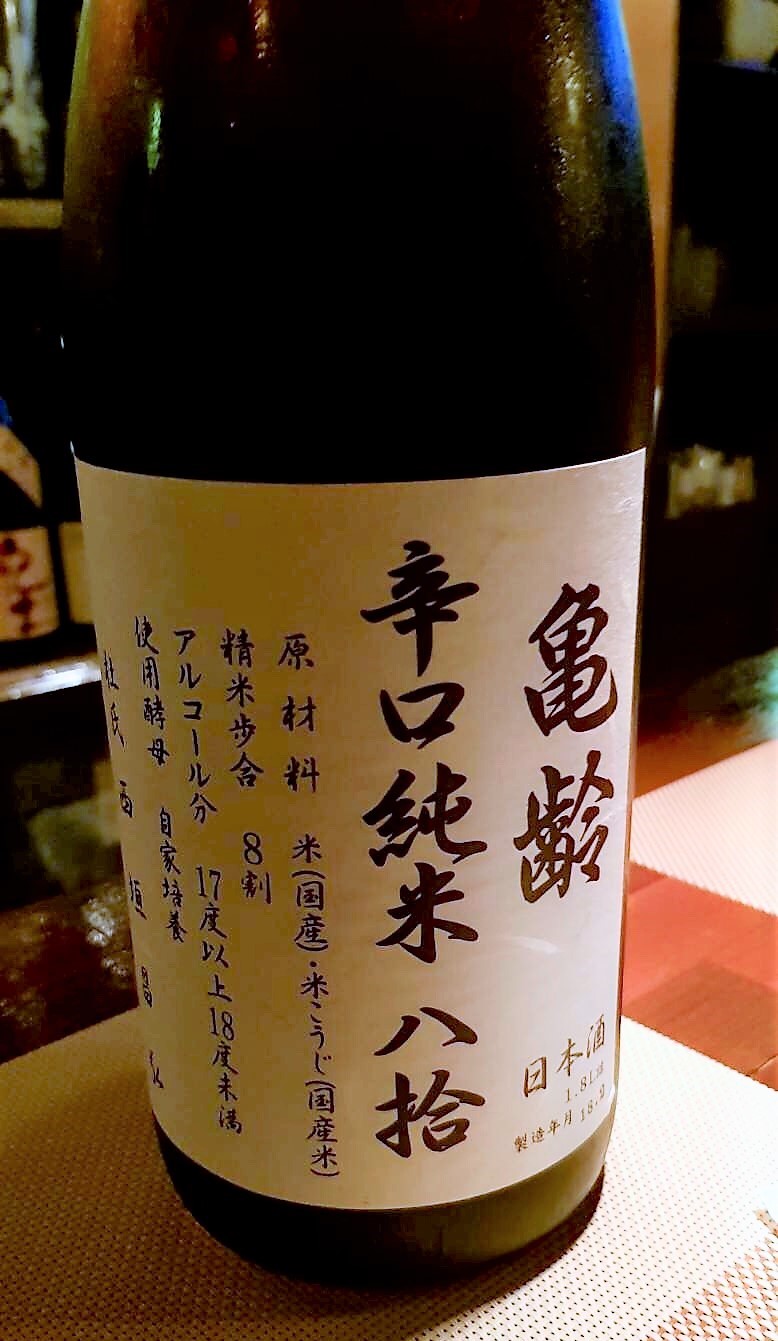 亀齢
日本酒
1.8L詰
製造年月 18.
辛口純米 八拾
原材料 米(国産)・米こうじ(国産米)
精米歩合 8割
アルコール分 17度以上18度未満
使用酵母 自家培養
杜氏 西垣昌弘